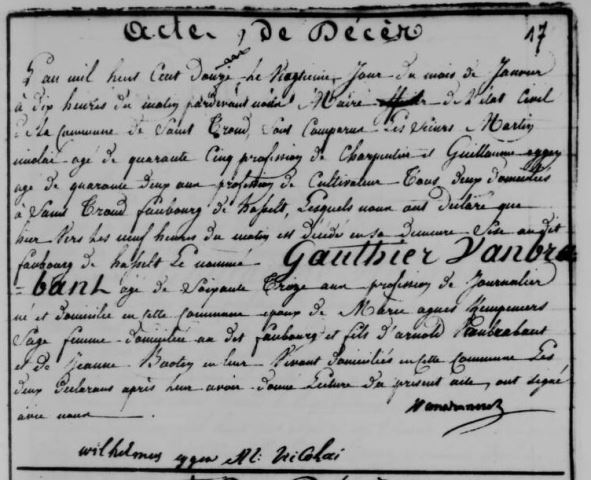 Acte, de Décèx
17
L'an mil huit Cent Douze Le Vingtieme Jour du mois de Janvier
à Dix heures du matin pardevant nous Maire de l'état Civil
de la Commune de Saint Trond, Sont Comparus Les Sieurs Martin
nicolai agé de quarante Cinq profession de Charpentier et Guillaume eggen
age de quarante deux ans profession de Cultivateur Tous deux domiciliés
à Saint Trond faubourg de hasselt, Lesquels nous ont Déclaré que
hier vers Les neuf heures du matin est décédé en sa demeure Sise au dit
faubourg de hasselt Le nommé Gauthier Vanbra
=bant âgé de Soixante Treize ans profession de Journalier
né et domicilié en cette Commune epoux de Marie agnes Kempeneers
Sage femme domiciliée au dit faubourg et fils d'arnold Vanbrabant
et de Jeanne en leur Vivant domiciliés en cette Commune Les
deux Déclarans après leur avoir donné Lecture du présent acte, ont signé
avec nous
wilhelmus eggen M: Nicolai